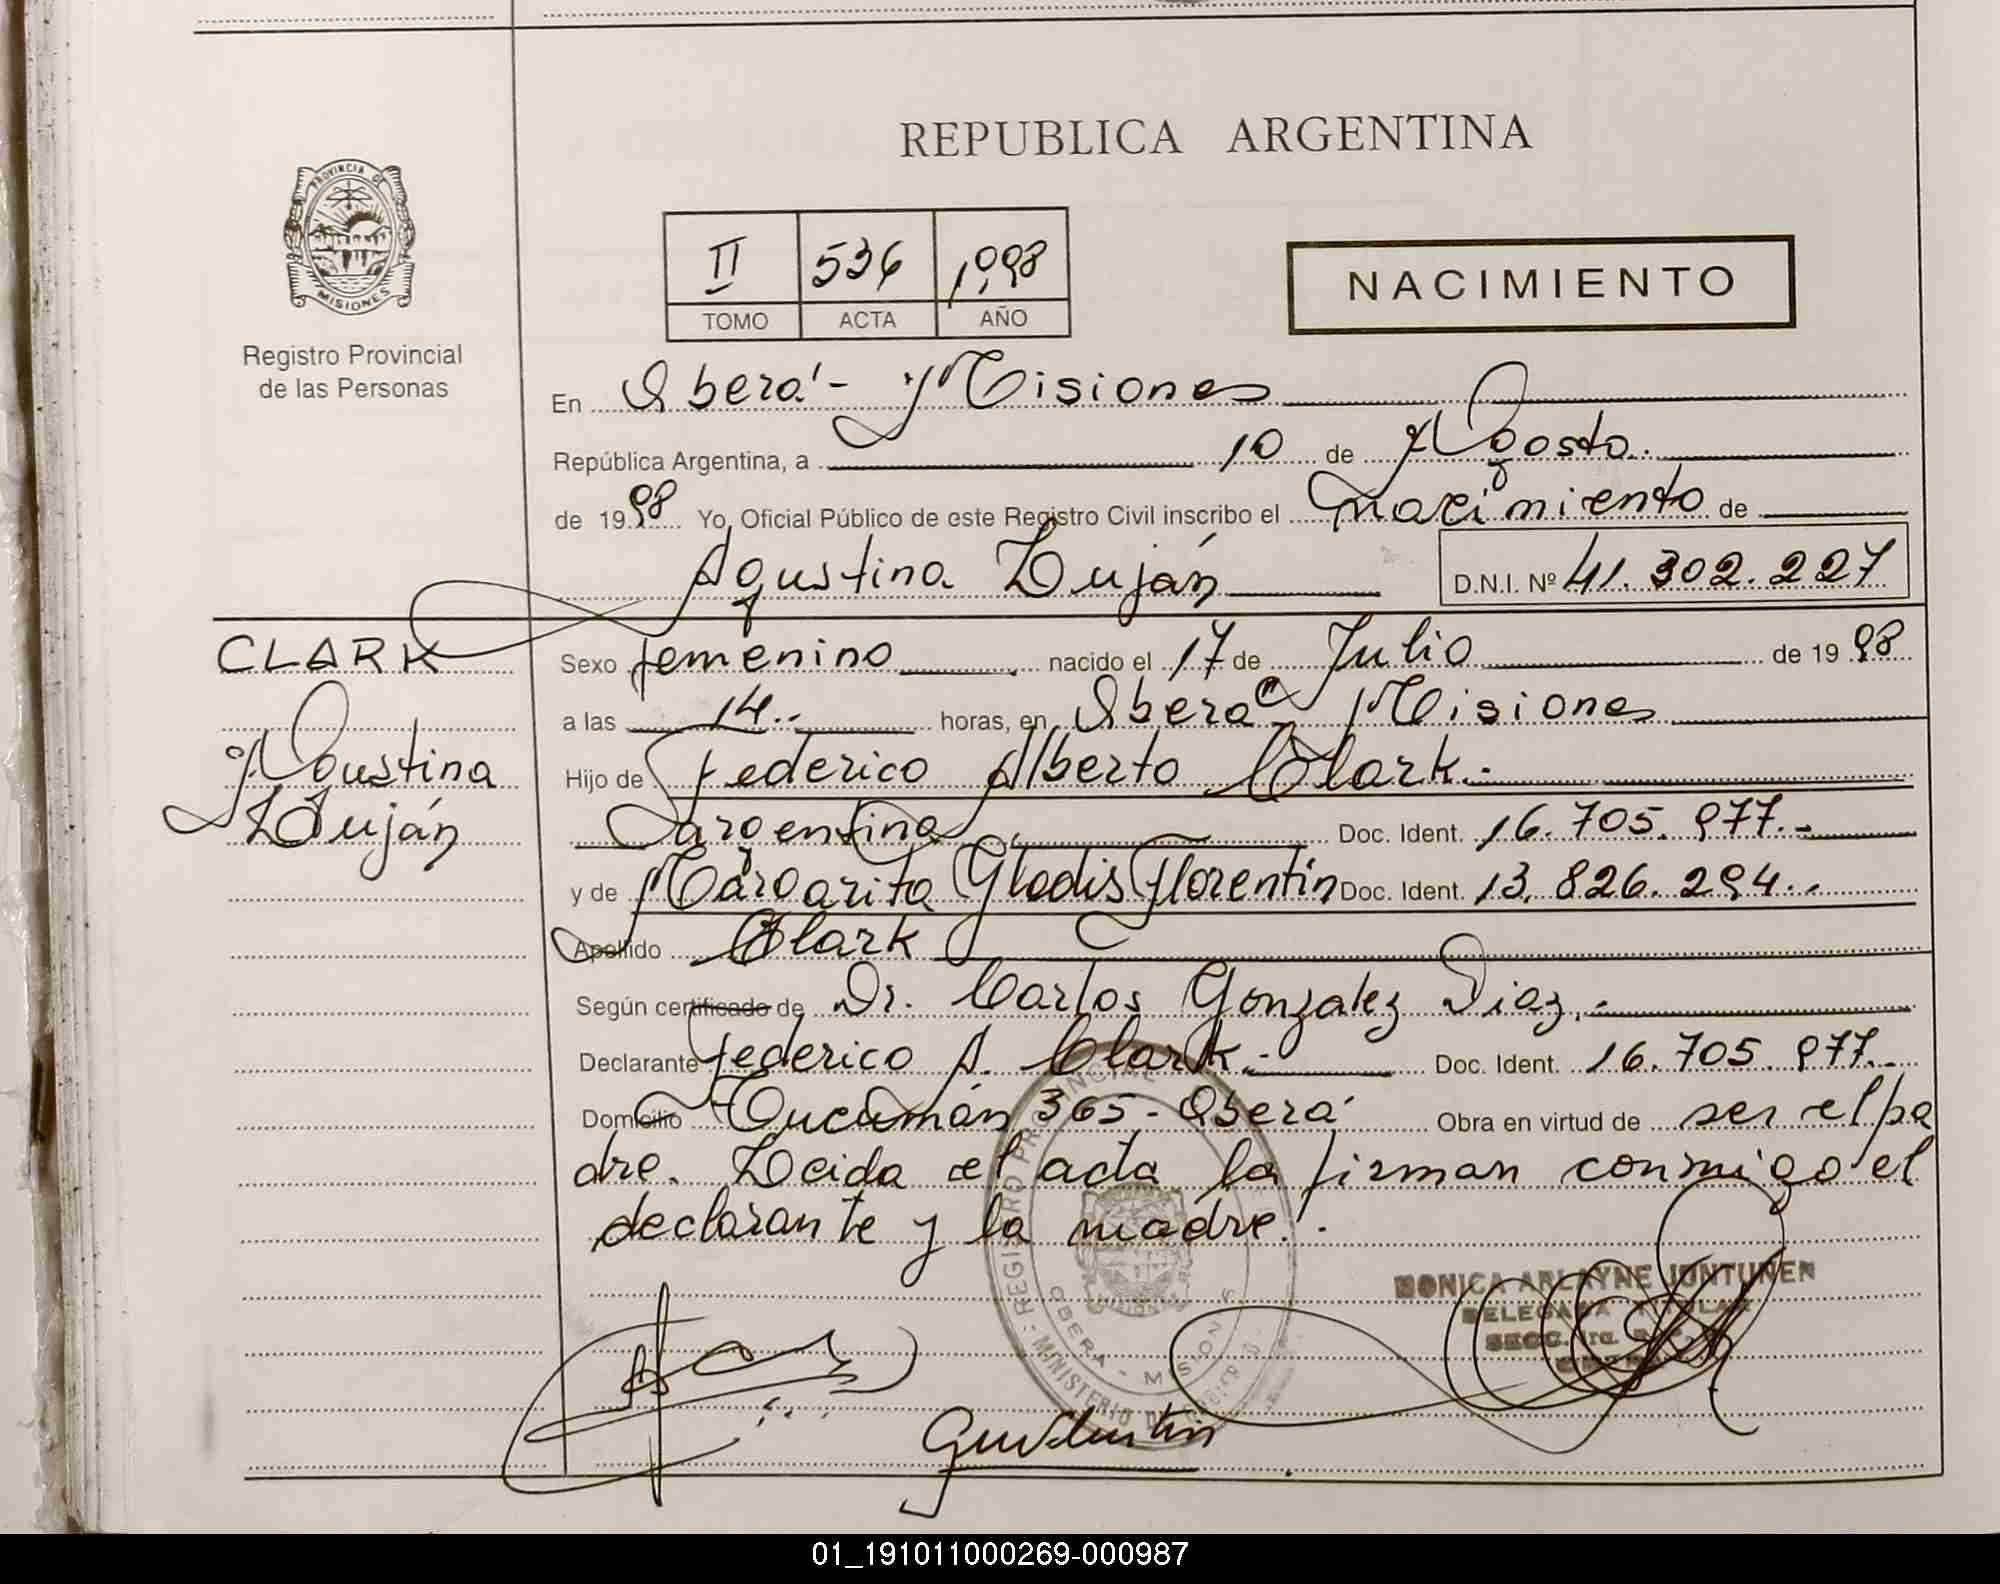 REPUBLICA ARGENTINA
PROVINCIA DE
MISIONES
Registro Provincial
de las Personas
II 536 1998
TOMO ACTA AÑO
NACIMIENTO
En Oberá - Misiones
República Argentina, a 10 de Agosto.
de 1998 Yo, Oficial Público de este Registro Civil inscribo el nacimiento de
Agustina Luján
D.N.I. Nº 41.302.227
CLARK
Agustina
Luján
Sexo femenino nacido el 17 de Julio de 1998
a las 14.. horas, en Oberá - Misiones
Hijo de Federico Alberto Clark.-
argentino Doc. Ident. 16.705.977.-
y de Margarita Gladis Florentín Doc. Ident. 13.826.294..
Apellido Clark
Según certificado de Dr. Carlos Gonzalez Diaz.-
Declarante Federico A. Clark.- Doc. Ident. 16.705.977..
Domicilio Tucumán 365 - Oberá Obra en virtud de ser el pa
dre. Leida el acta la firman conmigo el
declarante y la madre.-
REGISTRO PROVINCIAL
MINISTERIO DE
OBERA - MISIONES
MONICA ARLAYNE JUNTUNEN
DELEGADA TITULAR
01_191011000269-000987